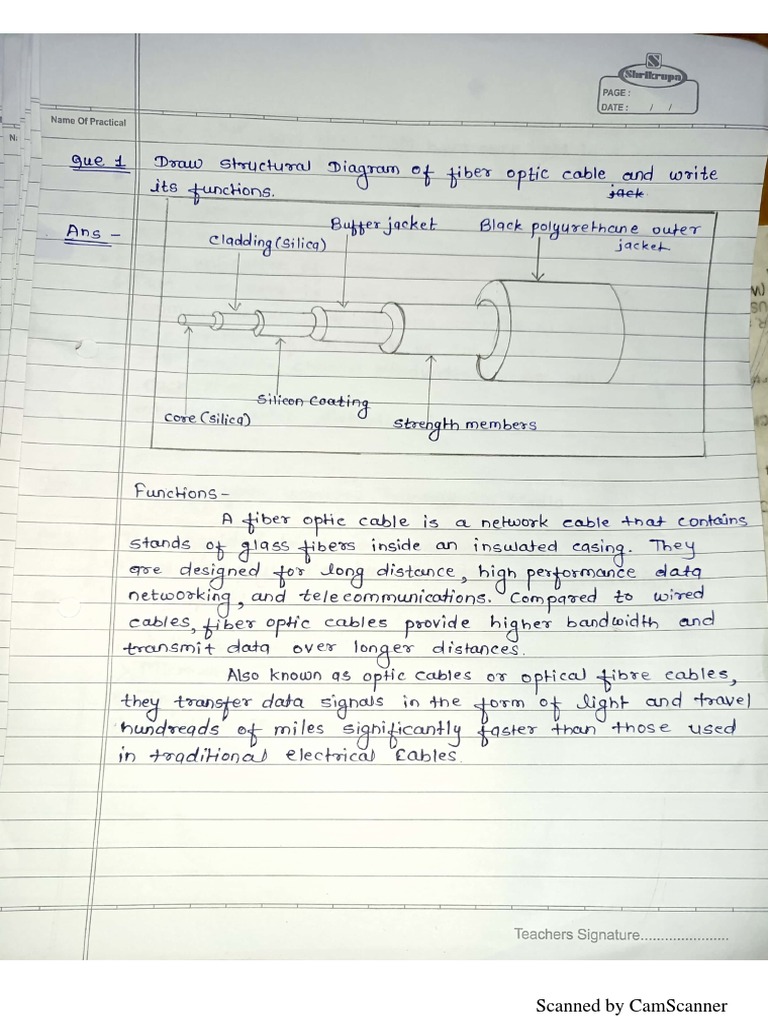 S
Shrikrupa
PAGE :
DATE : / /
Name Of Practical
Na
Que 1 Draw structural Diagram of fiber optic cable and write
its functions. jack
Ans -
Buffer jacket Black polyurethane outer
cladding (silica) jacket
Silicon coating
core (silica) strength members
Functions -
A fiber optic cable is a network cable that contains
stands of glass fibers inside an insulated casing. They
are designed for long distance, high performance data
networking, and telecommunications. Compared to wired
cables, fiber optic cables provide higher bandwidth and
transmit data over longer distances.
Also known as optic cables or optical fibre cables,
they transfer data signals in the form of light and travel
hundreads of miles significantly faster than those used
in traditional electrical cables.
Teachers Signature......................
Scanned by CamScanner